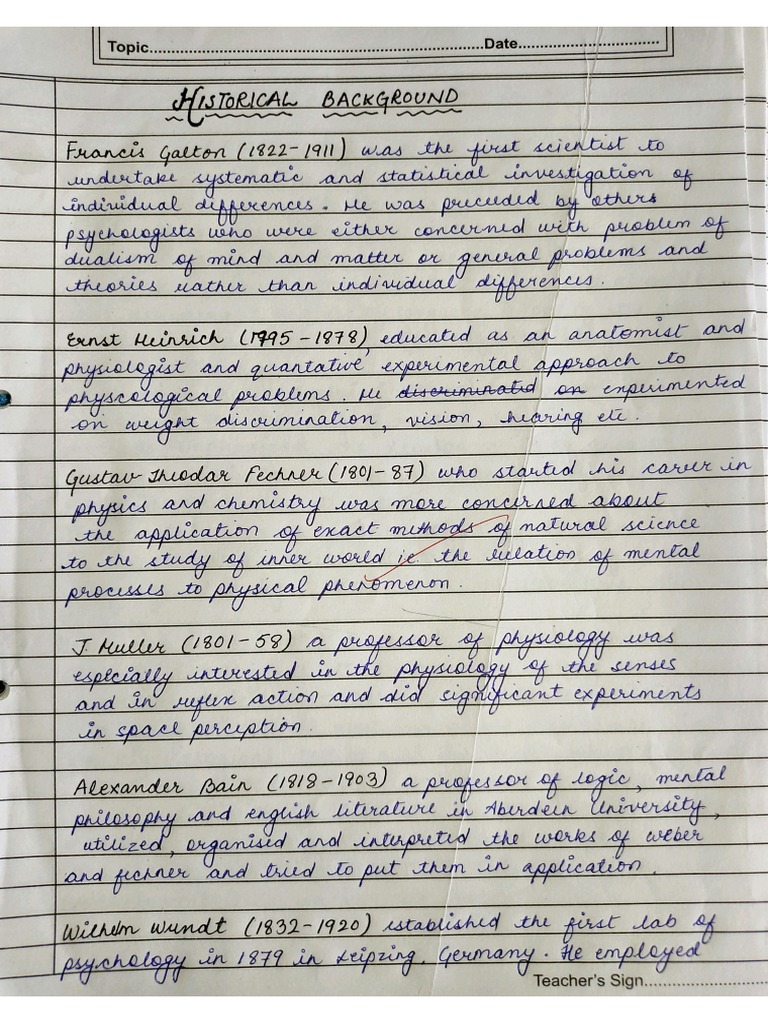 Topic.....................................................................................Date...................................
HISTORICAL BACKGROUND
Francis Galton (1822-1911) was the first scientist to
undertake systematic and statistical investigation of
individual differences. He was preceded by others
psychologists who were either concerned with problem of
dualism of mind and matter or general problems and
theories rather than individual differences.
Ernst Heinrich (1795-1878), educated as an anatomist and
physiologist and quantative experimental approach to
physcological problems. He discriminated on experimented
on weight discrimination, vision, hearing etc.
Gustav Theodar Fechner (1801-87) who started his career in
physics and chemistry was more concerned about
the application of exact methods of natural science
to the study of inner world ie the relation of mental
processes to physical phenomenon.
J. Muller (1801-58) a professor of physiology was
especially interested in the physiology of the senses
and in reflex action and did significant experiments
in space perception.
Alexander Bain (1818-1903) a professor of logic, mental
philosophy and english literature in Aberdeen University,
utilized, organised and interpreted the works of weber
and fechner and tried to put them in application.
Wilhelm Wundt (1832-1920) established the first lab of
psychology in 1879 in Leipzing, Germany. He employed
Teacher's Sign.........................